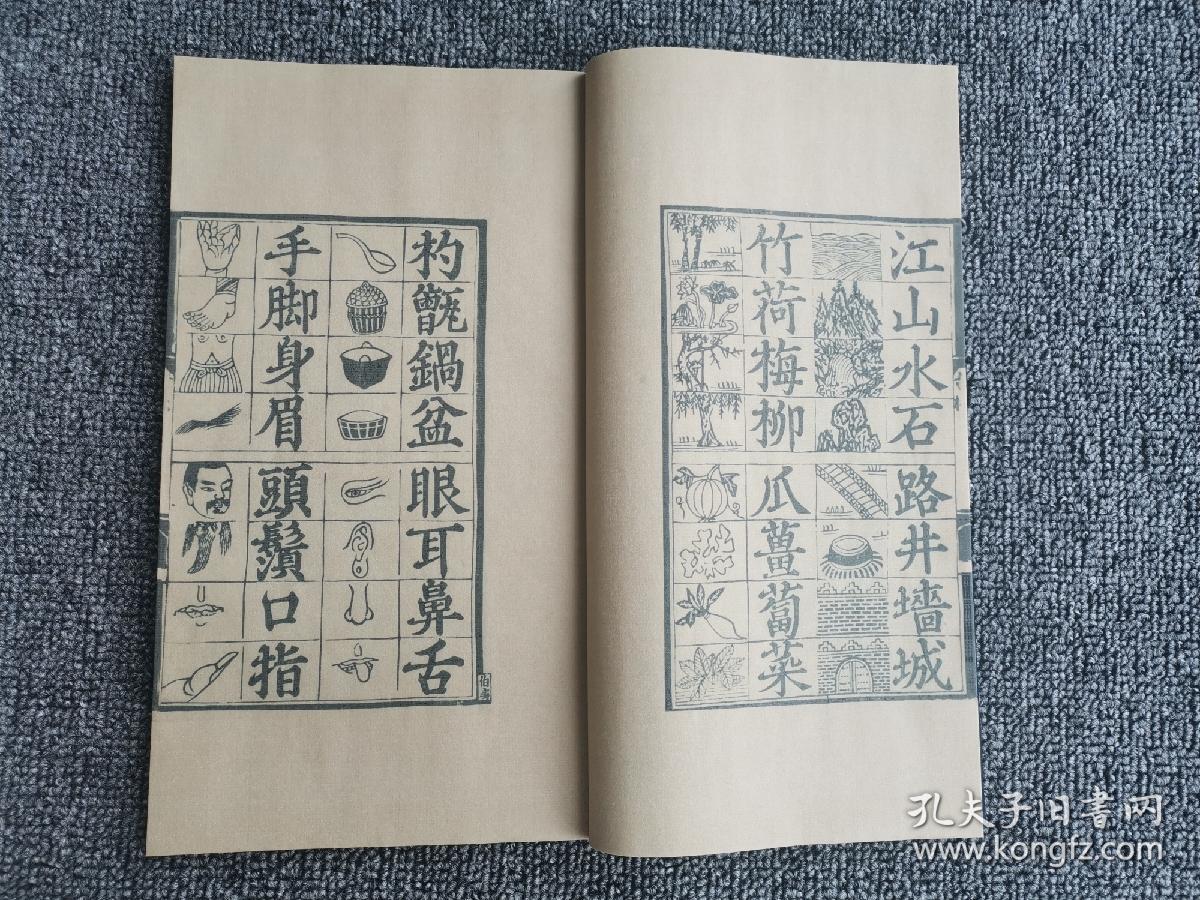 江山水石路井墻城
竹荷梅柳瓜薑蔔菜
杓甑鍋盆眼耳鼻舌
手脚身眉頭鬚口指
孔夫子旧書网
www.kongfz.com